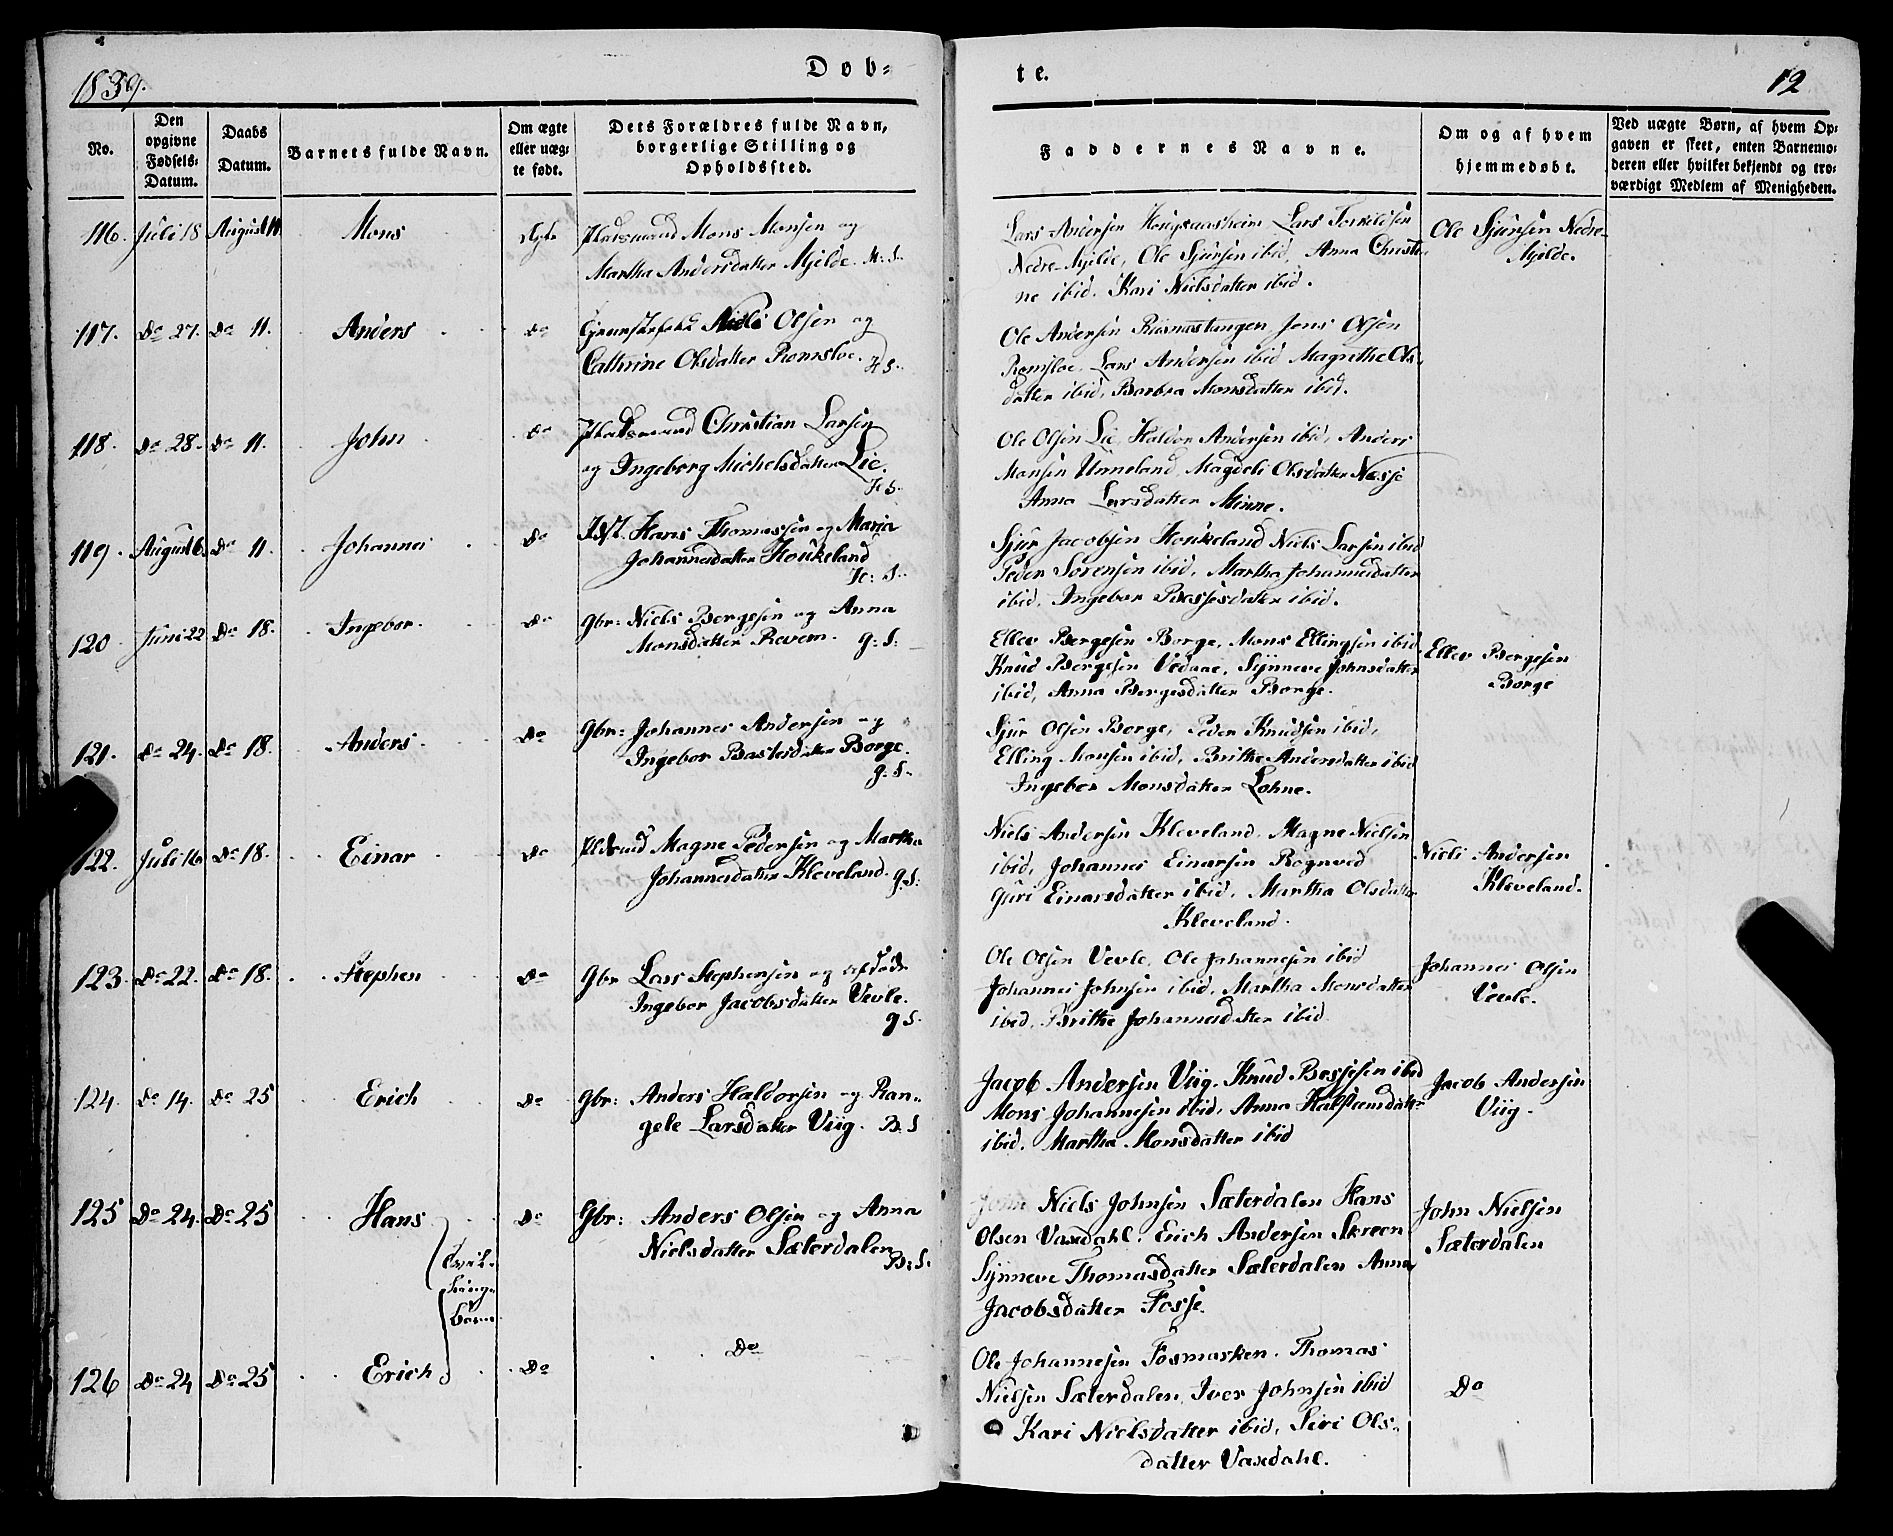 1839.
Døb-
te.
12
No.
Den opgivne Fødsels-Datum.
Daabs Datum.
Barnets fulde Navn.
Om ægte eller uægte født.
Dets Forældres fulde Navn, borgerlige Stilling og Opholdssted.
Faddernes Navne.
Om og af hvem hjemmedøbt.
Ved uægte Børn, af hvem Opgaven er skeet, enten Barnemoderen eller hvilket bekjendt og troværdigt Medlem af Menigheden.
116. Juli 18 August 11 Mons Ægte Pladsmand Mons Monsen og
Martha Andersdatter Mjelde. H: S.
Lars Andersen Lars Torkildsen
Nedre-Mjelde, Ole Sjursen ibid, Anna Christi-
ne ibid. Kari Nielsdatter ibid.
Ole Sjursen Nedre-
Mjelde.
117. Do 27. Do 11. Anders Do Niels Olsen og
Cathrine Olsdatter Romsloe. H S.
Ole Andersen Jens Olsen
Romsloe, Lars Andersen ibid Magrethe Ols-
datter ibid, Barbra Monsdatter ibid.
118. Do 28. Do 11. John Do Pladsmand Christian Larsen
og Ingeborg Michelsdatter Lie.
H S.
Ole Olsen Lie, Haldor Andersen ibid, Anders
Monsen Unneland, Magdeli Olsdatter Næsse
Anna Larsdatter Minne.
119. August 6. Do 11. Johannes Do Hans Thomassen og Maria
Johannesdatter Houkeland
H: S.
Sjur Jacobsen Houkeland Niels Larsen ibid
Peder Sørensen ibid, Martha Johannesdatter
ibid, Ingebor Bessesdatter ibid.
120 Juni 22 Do 18. Ingebor. Do Gbr: Niels Bergesen og Anna
Monsdatter Revem. g: S:
Ellev Bergesen Borge, Mons Ellingsen ibid,
Knud Bergesen Vedaae, Synneve Johnsdatter
ibid, Anna Bergesdatter Borge.
Ellev Bergesen
Borge
121. Do 24. Do 18. Anders. Do Gbr: Johannes Andersen og
Ingebor Bastesdatter Borge.
g: S.
Sjur Olsen Borge, Peder Knudsen ibid,
Elling Monsen ibid, Brithe Andersdatter ibid
Ingebor Monsdatter Lohne.
122. Juli 16 Do 18. Einar Do Magne Pedersen og Martha
Johannesdatter Kleveland. g S:
Niels Andersen Kleveland, Magne Nielsen
ibid, Johannes Einarsen Rognved
Guri Einarsdatter ibid, Martha Olsdatter
Kleveland.
Niels Andersen
Kleveland.
123. Do 22. Do 18. Stephen Do Gbr Lars Stephensen og afdøde
Ingebor Jacobsdatter Vevle.
g S.
Ole Olsen Vevle, Ole Johannesen ibid
Johannes Johnsen ibid, Martha Monsdatter
ibid, Brithe Johannesdatter ibid
Johannes Olsen
Vevle.
124. Do 14. Do 25 Erich Do Gbr: Anders Haldorsen og Ran-
gele Larsdatter Viig. B. S
Jacob Andersen Viig. Knud Bessesen ibid
Mons Johannesen ibid, Anna Halsteensdatter
ibid, Martha Monsdatter ibid
Jacob Andersen
Viig.
125 Do 24. Do 25 Hans Do Gbr: Anders Olsen og Anna
Nielsdatter Sæterdalen
B: S.
Tvil-
linge
børn
Niels Johnsen Sæterdalen Hans
Olsen Vaxdahl, Erich Andersen Skreen
Synneve Thomasdatter Sæterdalen Anna
Jacobsdatter Fosse.
John Nielsen
Sæterdalen
126 Do 24 Do 25 Erich Do Do
Ole Johannesen Fosmarken. Thomas
Nielsen Sæterdalen, Iver Johnsen ibid
Kari Nielsdatter ibid, Siri Ols-
datter Vaxdahl.
Do